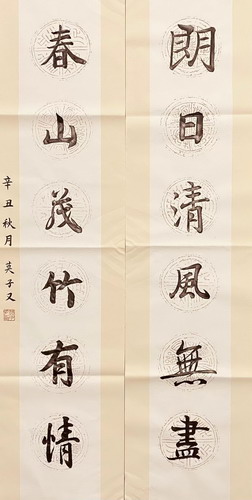 朗日清風無盡
春山茂竹有情
辛丑秋月 英子又